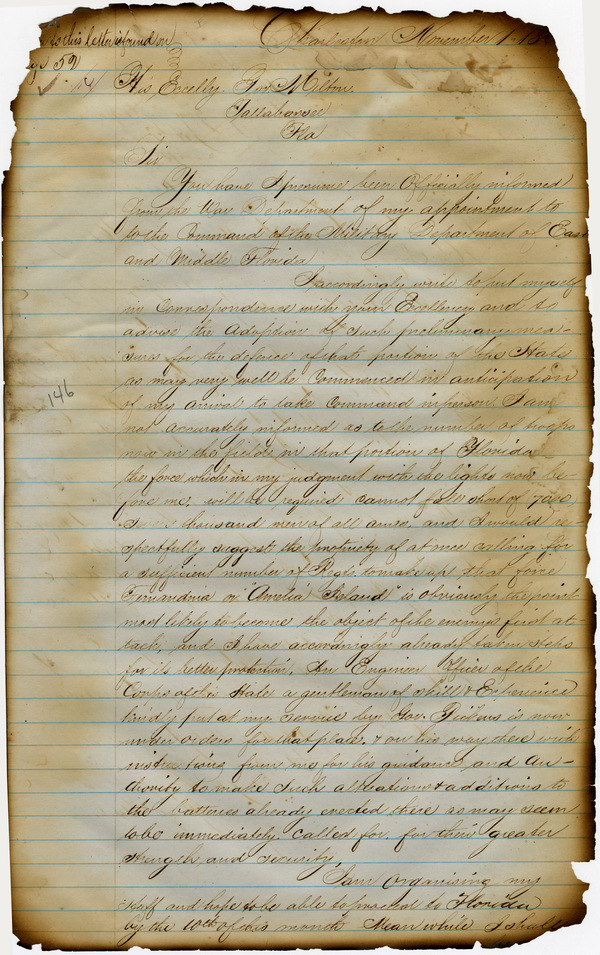 to this letter is found on
59
Charleston November 1. 18
His Excelly. Gov Milton
Tallahassee
Fla
Sir
You have I presume been Officially informed
from the War Department of my appointment to
to the Command of the Military Department of East
and Middle Florida
I accordingly write to put myself
in Correspondence with your Excellency and to
advise the adoption of such preliminary mea-
sures for the defence of that portion of the State
as may very well be Commenced in anticipation
of my arrival to take Command in person. I am
not accurately informed as to the number of troops
now in the field in that portion of Florida
146
the force which in my judgment with the lights now be-
fore me, will be required cannot fall short of 7000,
Seven thousand men of all arms, and I would re-
spectfully suggest the propriety of at once calling for
a sufficient number of Regts. to make up that force
Fernandina or "Amelia Island" is obviously the point
most likely to become the object of the enemys first at-
tack, and I have accordingly already taken steps
for its better protection, An Engineer Officer of the
Corps of this State a gentleman of skill & Experience
kindly put at my service by Gov. Pickens is now
under orders for that place, & on his way there with
instructions from me for his guidance, and au-
thority to make such alterations & additions to
the batteries already erected there as may seem
to be immediately called for, for their greater
strength and security,
I am organising my
staff and hope to be able to proceed to Florida
by the 10th of this month Mean while I shall